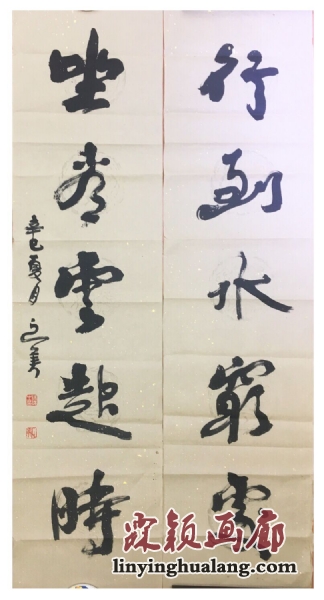 行到水窮處
坐看雲起時
辛巳夏月
霖颖画廊
linyinghualang.com